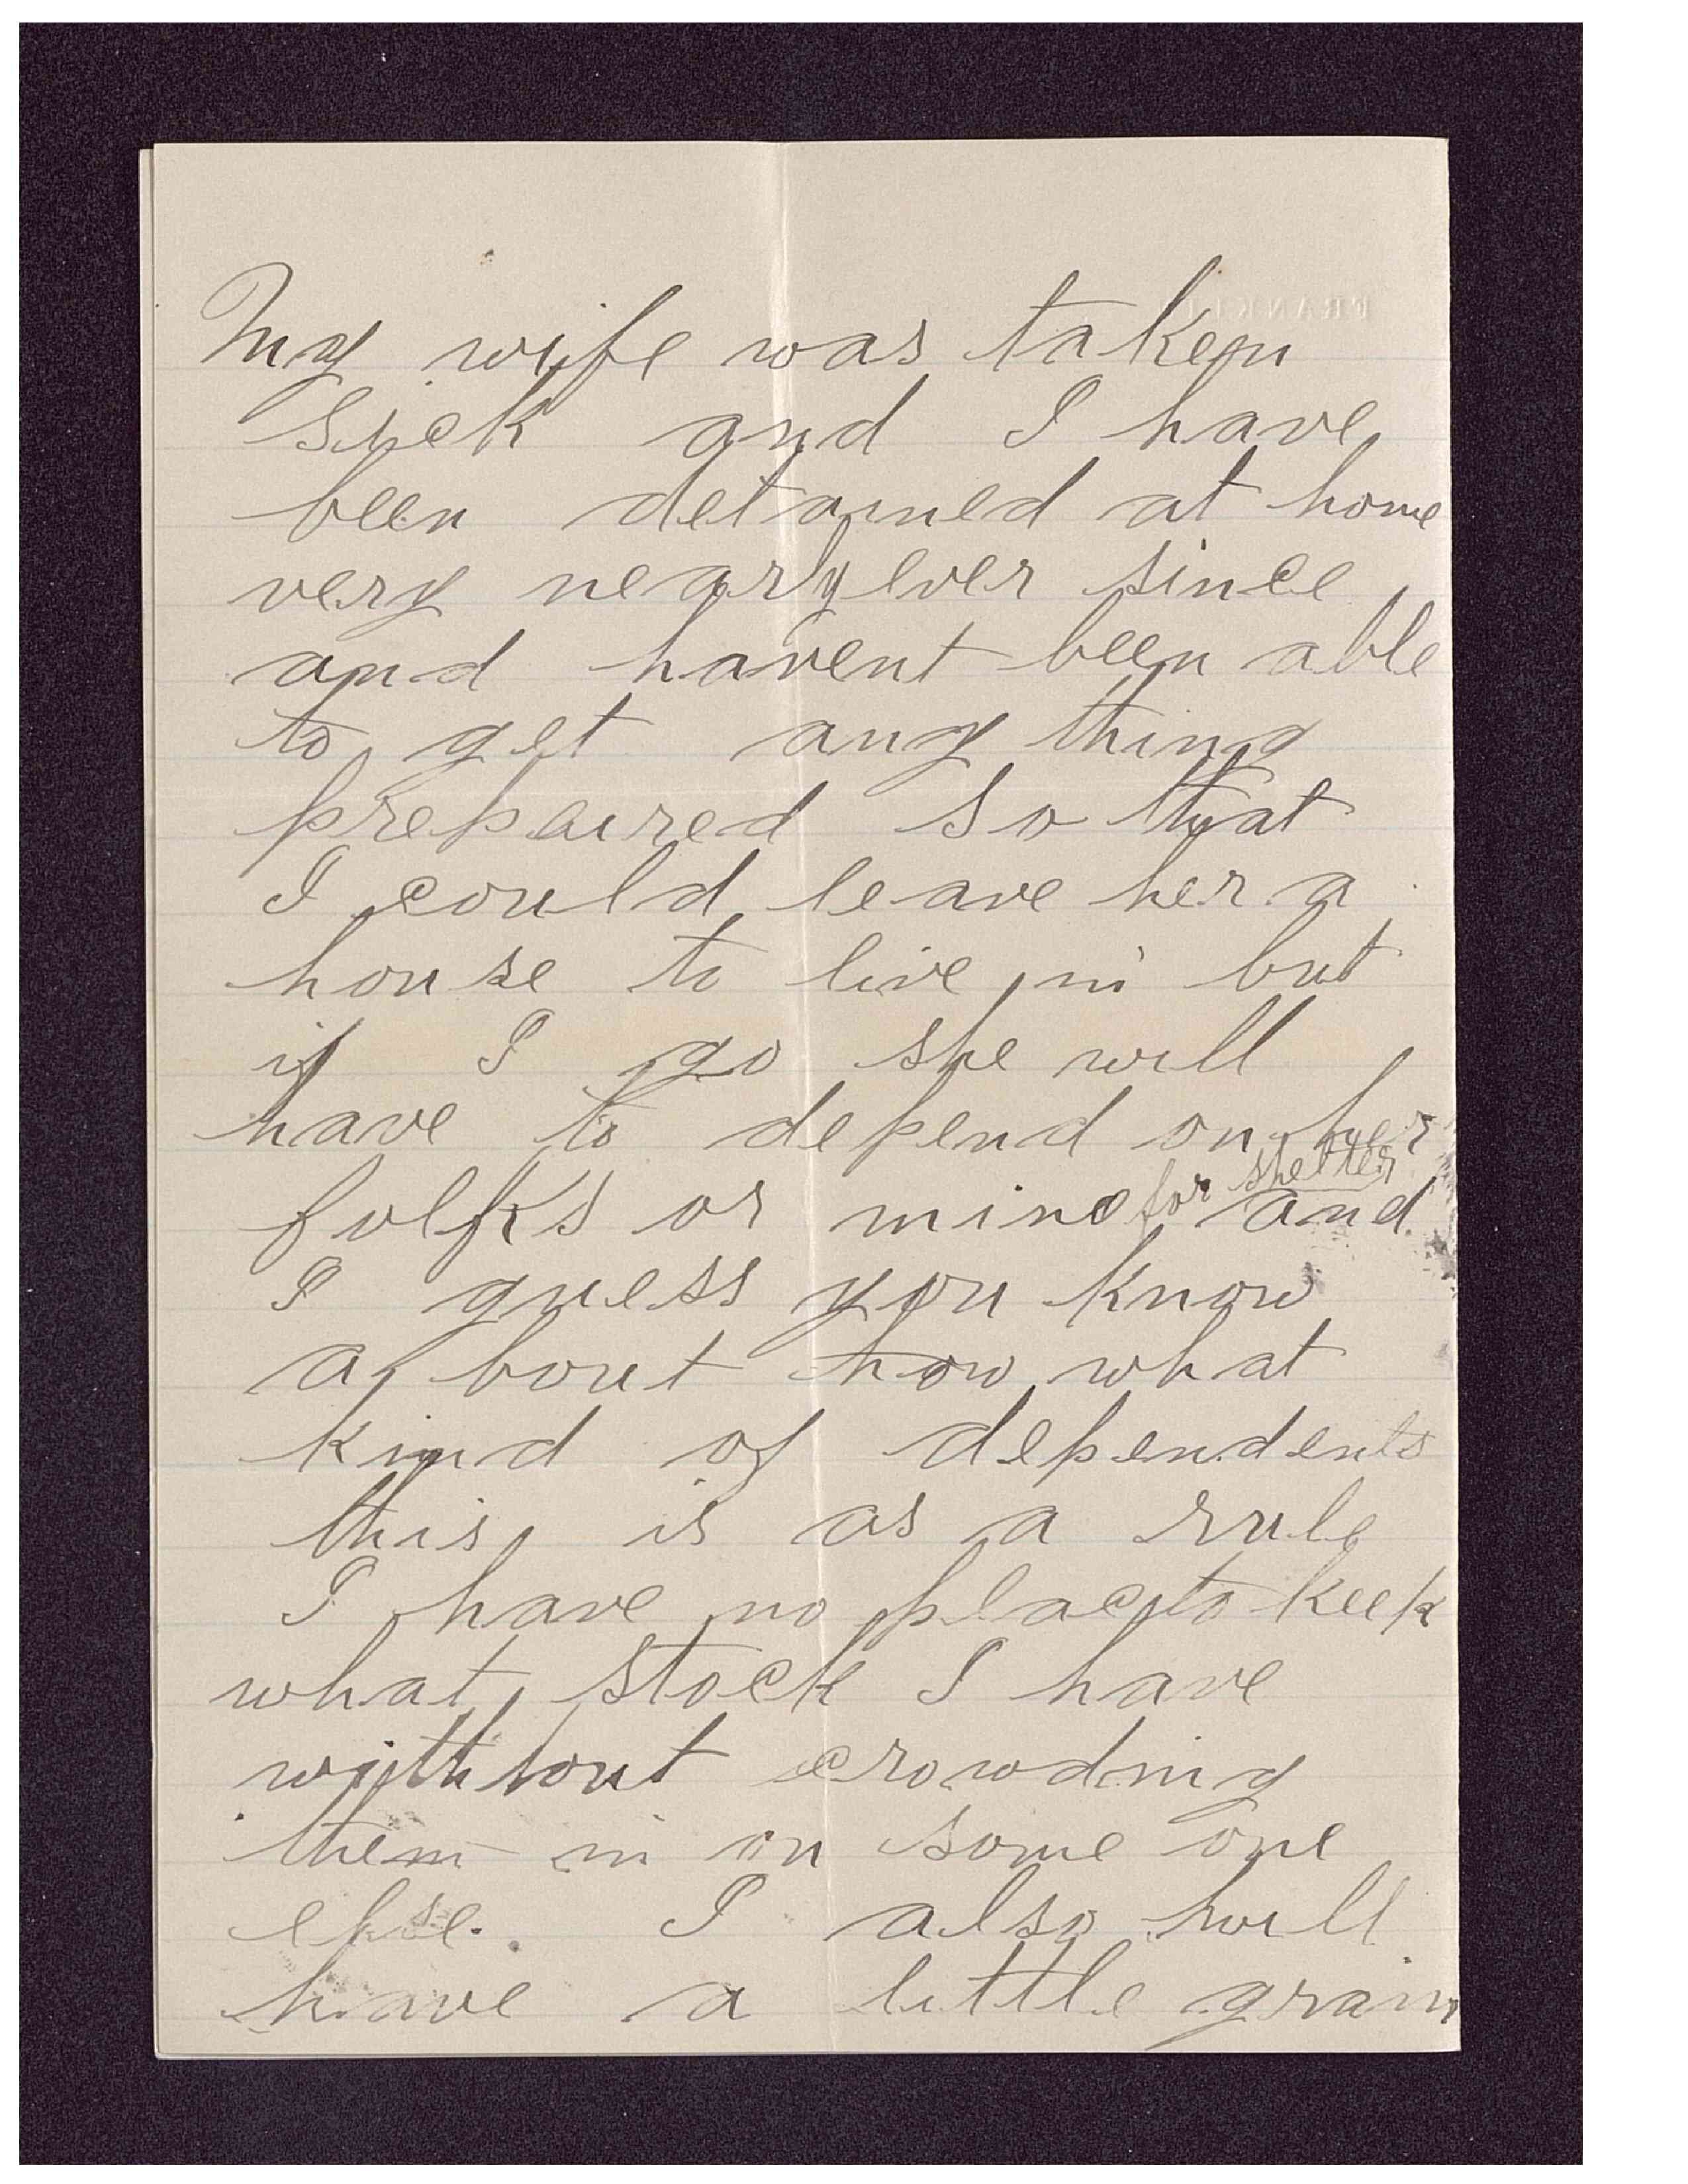 My wife was taken
sick and I have
been detained at home
very nearly ever since
and havent been able
to get any thing
prepaired so that
I could leave her a
house to live in but
if I go she will
have to depend on her
for shelter
folks or mine and
I guess you know
a bout how what
kind of dependents
this is as a rule
I have no place to keep
what stock I have
without crowding
them in on some one
else. I also will
have a little grain